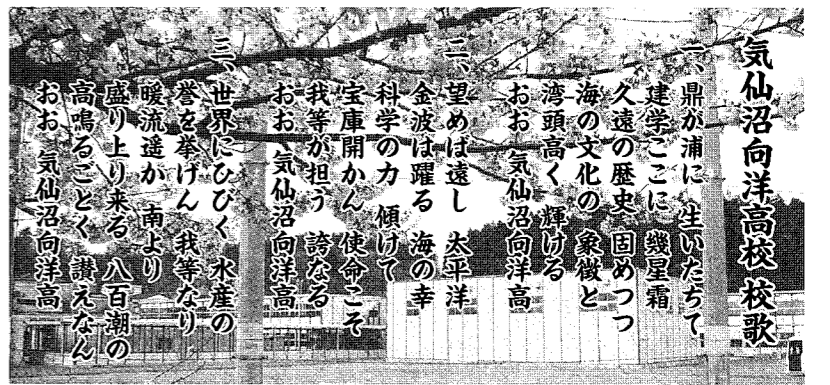 気仙沼向洋高校 校歌
一、鼎が浦に 生いたちて
建学ここに 幾星霜
久遠の歴史 固めつつ
海の文化の 象徴と
湾頭高く 輝ける
おお 気仙沼向洋高
二、望めば遠し 太平洋
金波は躍る 海の幸
科学の力 傾けて
宝庫開かん 使命こそ
我等が担う 誇なる
おお 気仙沼向洋高
三、世界にひびく 水産の
誉を挙げん 我等なり
暖流遥か 南より
盛り上り来る 八百潮の
高鳴るごとく 讃えなん
おお 気仙沼向洋高